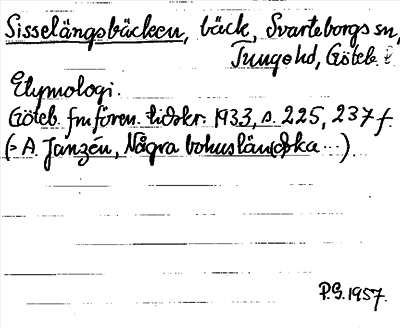 Sisselängsbäcken, bäck, Svarteborgs sn,
Tunge hd, Göteb. l.
Etymologi.
Göteb. fmfören. tidskr. 1933, s. 225, 237 f.
(= A. Janzén, Några bohusländska ...).
P.G. 1957.